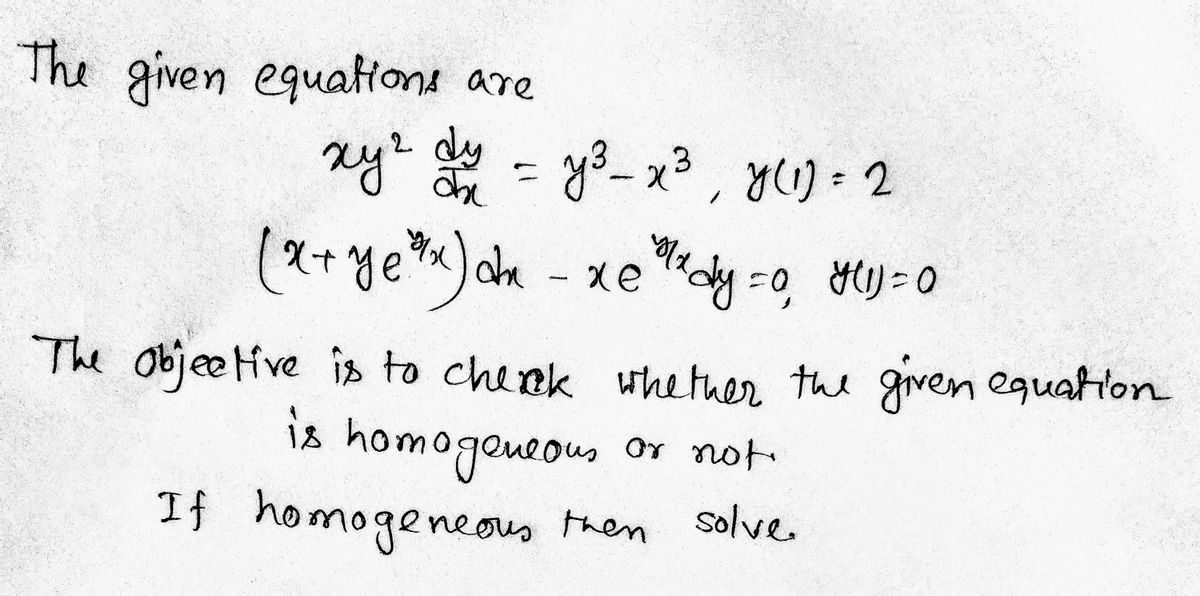 The given equations are
xy² dy/dx = y³ - x³, y(1) = 2
(x + ye^(y/x)) dx - xe^(y/x) dy = 0, y(1) = 0
The Objective is to check whether the given equation
is homogeneous or not.
If homogeneous then solve.